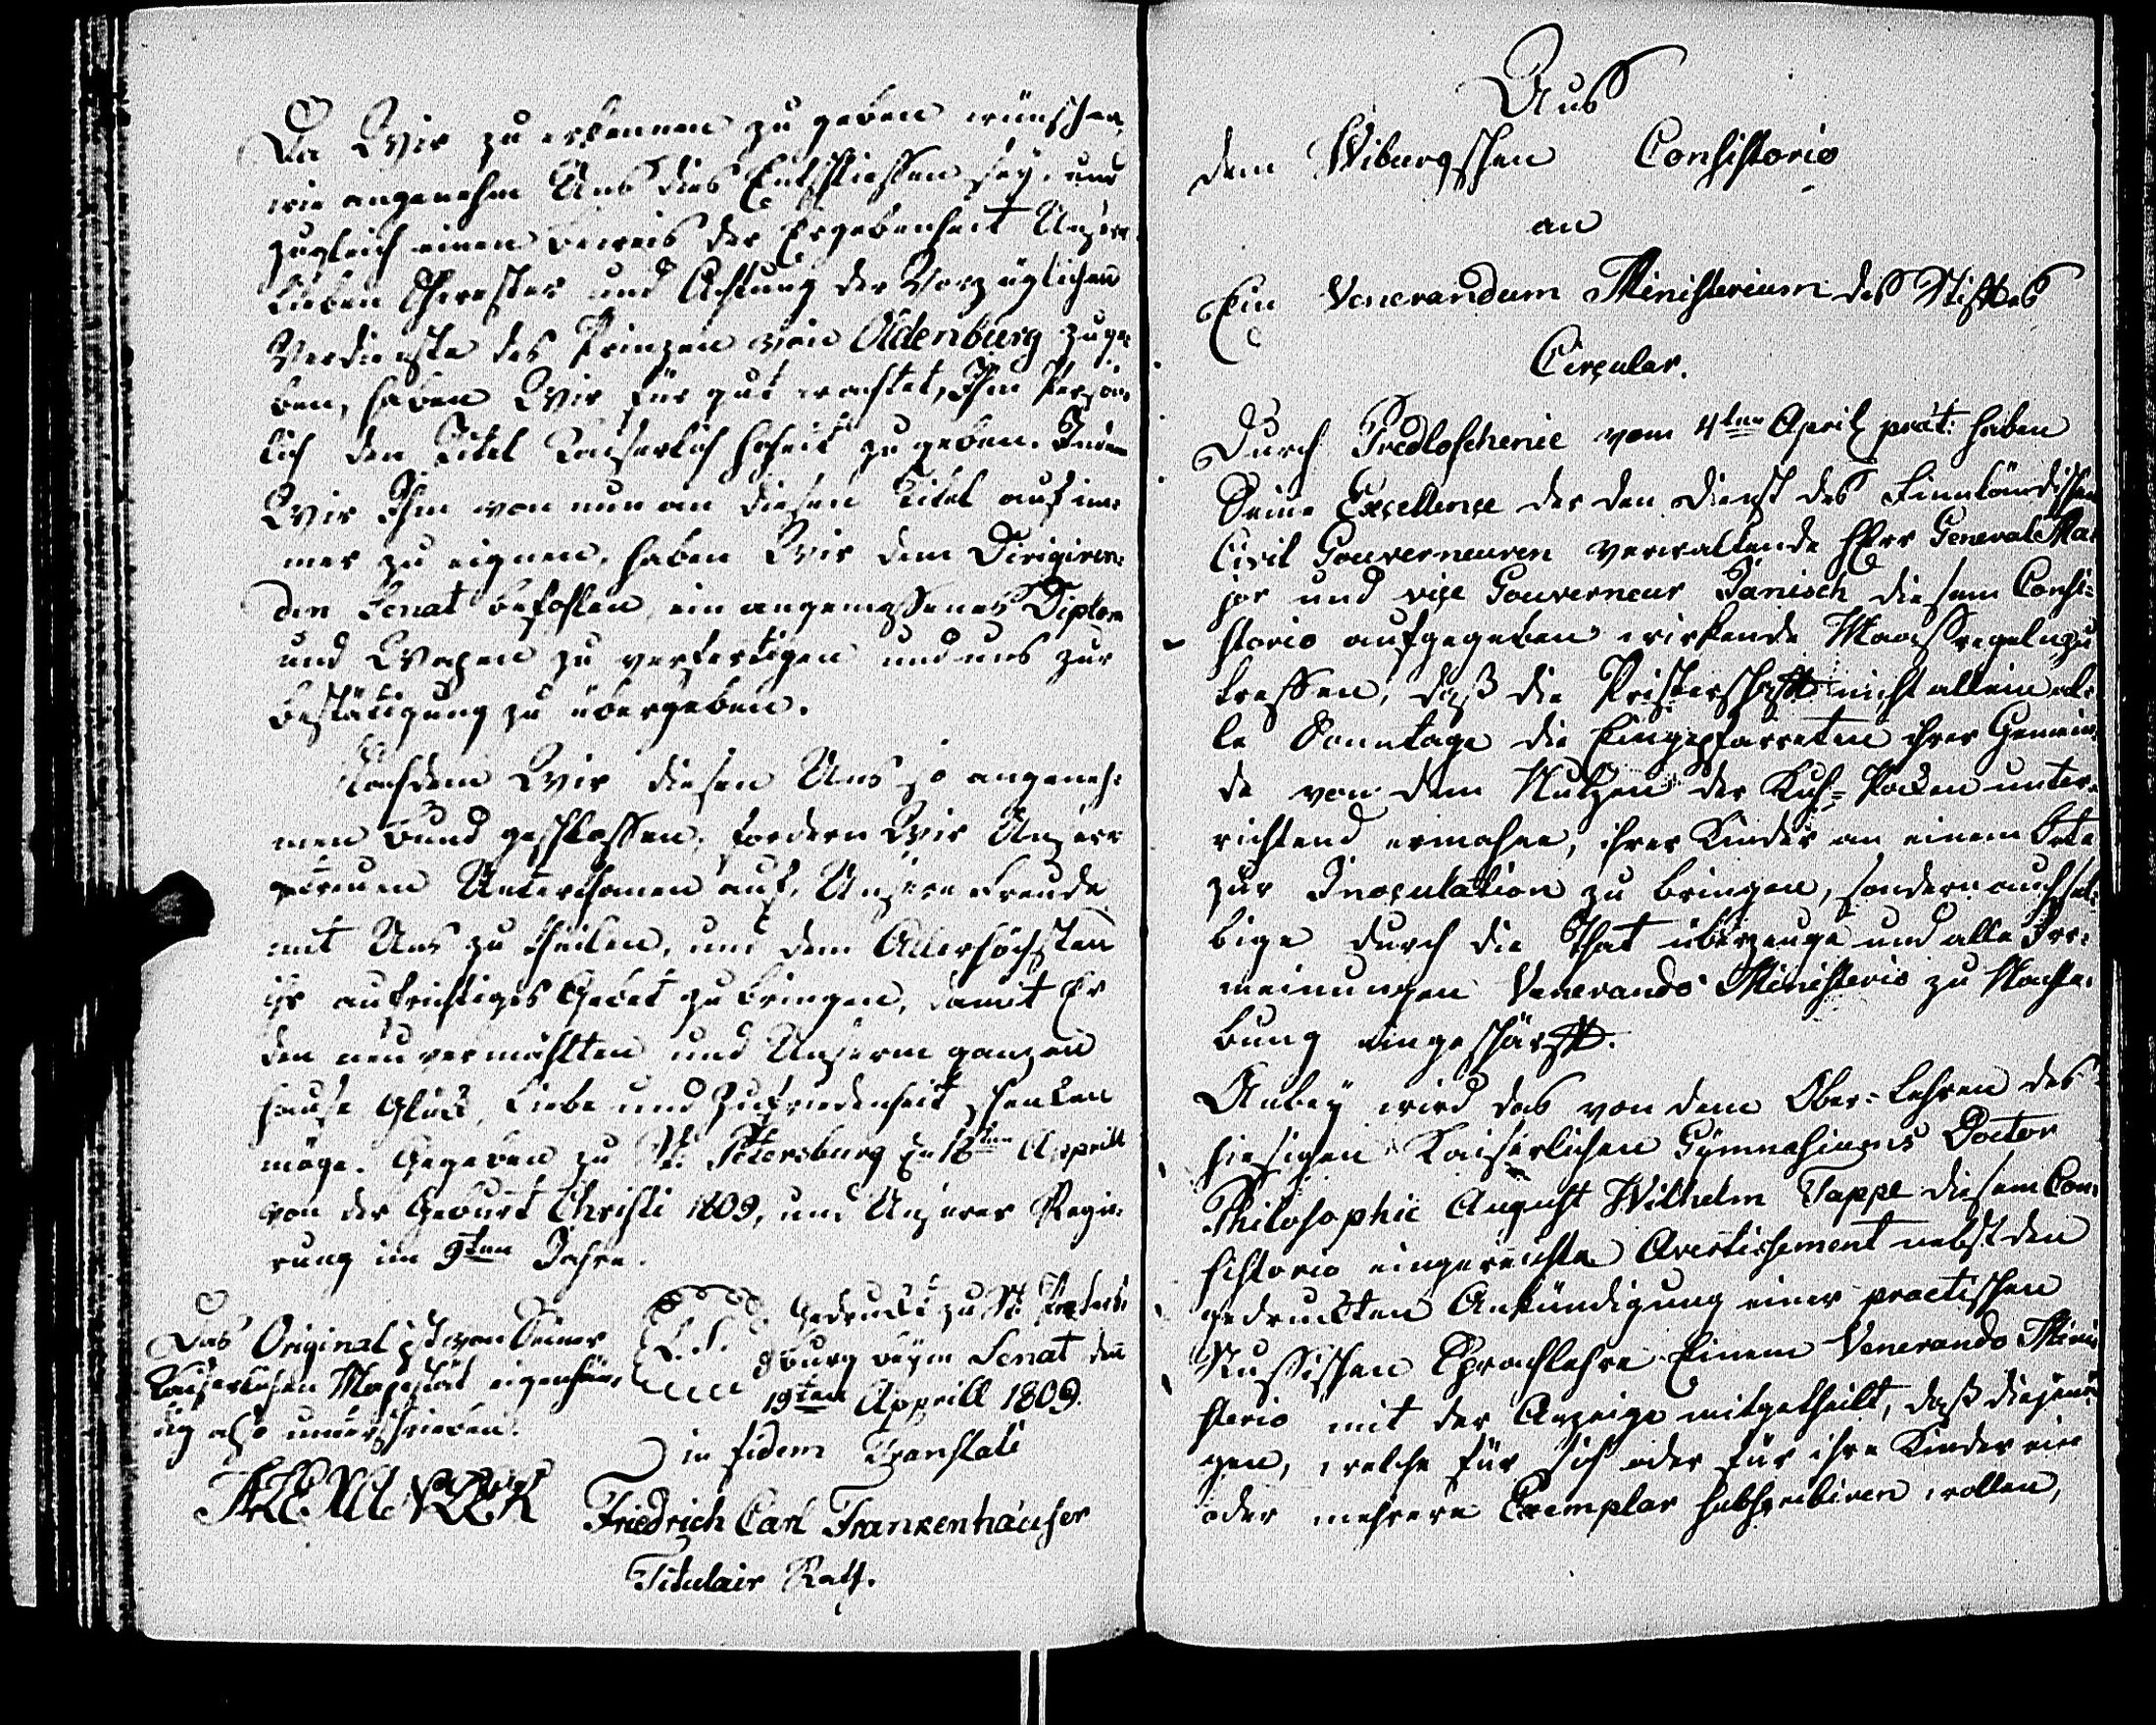 Da Wir zu erkennen zu geben wünschen,
wie angenehm Uns dies Entschliessen sey, und
zugleich einen beweis der Ergebenheit Unsere
lieben Schwester und Achtung der Vorzüglichen
Verdienste des Prinzen von Oldenburg zuge,
ben, haben Wir für gut erachtet, Ihm Persön,
lich den Titel Kaiserlich Hoheit zu geben. Indem
Wir Ihm von nun an diesen Titel auf im=
mer zu eignen, haben Wir dem Dirigiren=
den Senat befohlen ein angemessenes Diplom
und Wapen zu verfertigen und uns zur
bestätigung zu übergeben.
Nachdem Wir diesen Uns so angeneh=
men bund geschlossen, fordern Wir Unsere
getreuen Unterthanen auf, Unsere Freude
mit Uns zu theilen, und dem Allerhöchsten
ihr aufrichtiges Gebet zu bringen, damit Er
den neu vermählten und Unserm ganzen
Hause Glück, Liebe und Zufriedenheit schenken
möge. Gegeben zu St. Petersburg den 18ten Apprill
von der Geburt Christi 1809, und Unserer Regie=
rung im 9ten Jahre.
Das Original ist von Seiner
Kaiserlichen Majestät eigenhän,
dig also unterschrieben:
ALEXANDER
L. S.
Gedruckt zu St. Peters=
burg beym Senat den
19ten Apprill 1809.
in fidem Translati
Friedrich Carl Frankenhäuser
Titulair Rath.
Aus
dem Wiburgschen Consistorio
an
Ein Venerandum Ministerium des Stiftes
Circular.
Durch Predloschenie vom 4ten April prät: haben
Seine Excellence der den Dienst des Finnländischen
Civil Gouverneuren verwaltende Herr General Ma=
jor und vice Gouverneur Janisch diesem Consi=
storio aufgegeben wirkende Maasregeln zu
treffen, daß die Pristerschafft nicht allein al=
le Sonntage die Eingepfarreten ihrer Gemein=
de von dem Nutzen der Kuh=Pocken unter=
richtend ermahne, ihrer Kinder an einem Orte
zur Inoculation zu bringen, sondern auch sel=
bige durch die That überzeuge und alle Irr=
meinungen Venerando Ministerio zu Nachle=
bung eingeschärfft.
Anbey wird das von dem Ober=Lehren des
hiesigen Kaiserlichen Gymnasiums Doctor
Philosophie August Wilhelm Tappe diesem Con=
sistorio eingereichte Avertissement nebst den
gedruckten Ankündigung einer practischen
Russischen Sprachlehre Einem Venerando Mini=
sterio mit der Anzeige mitgetheilt, daß diejeni=
gen, welche für sich oder für ihre Kinder ein
oder mehrere Exemplar subscribiren wollen,